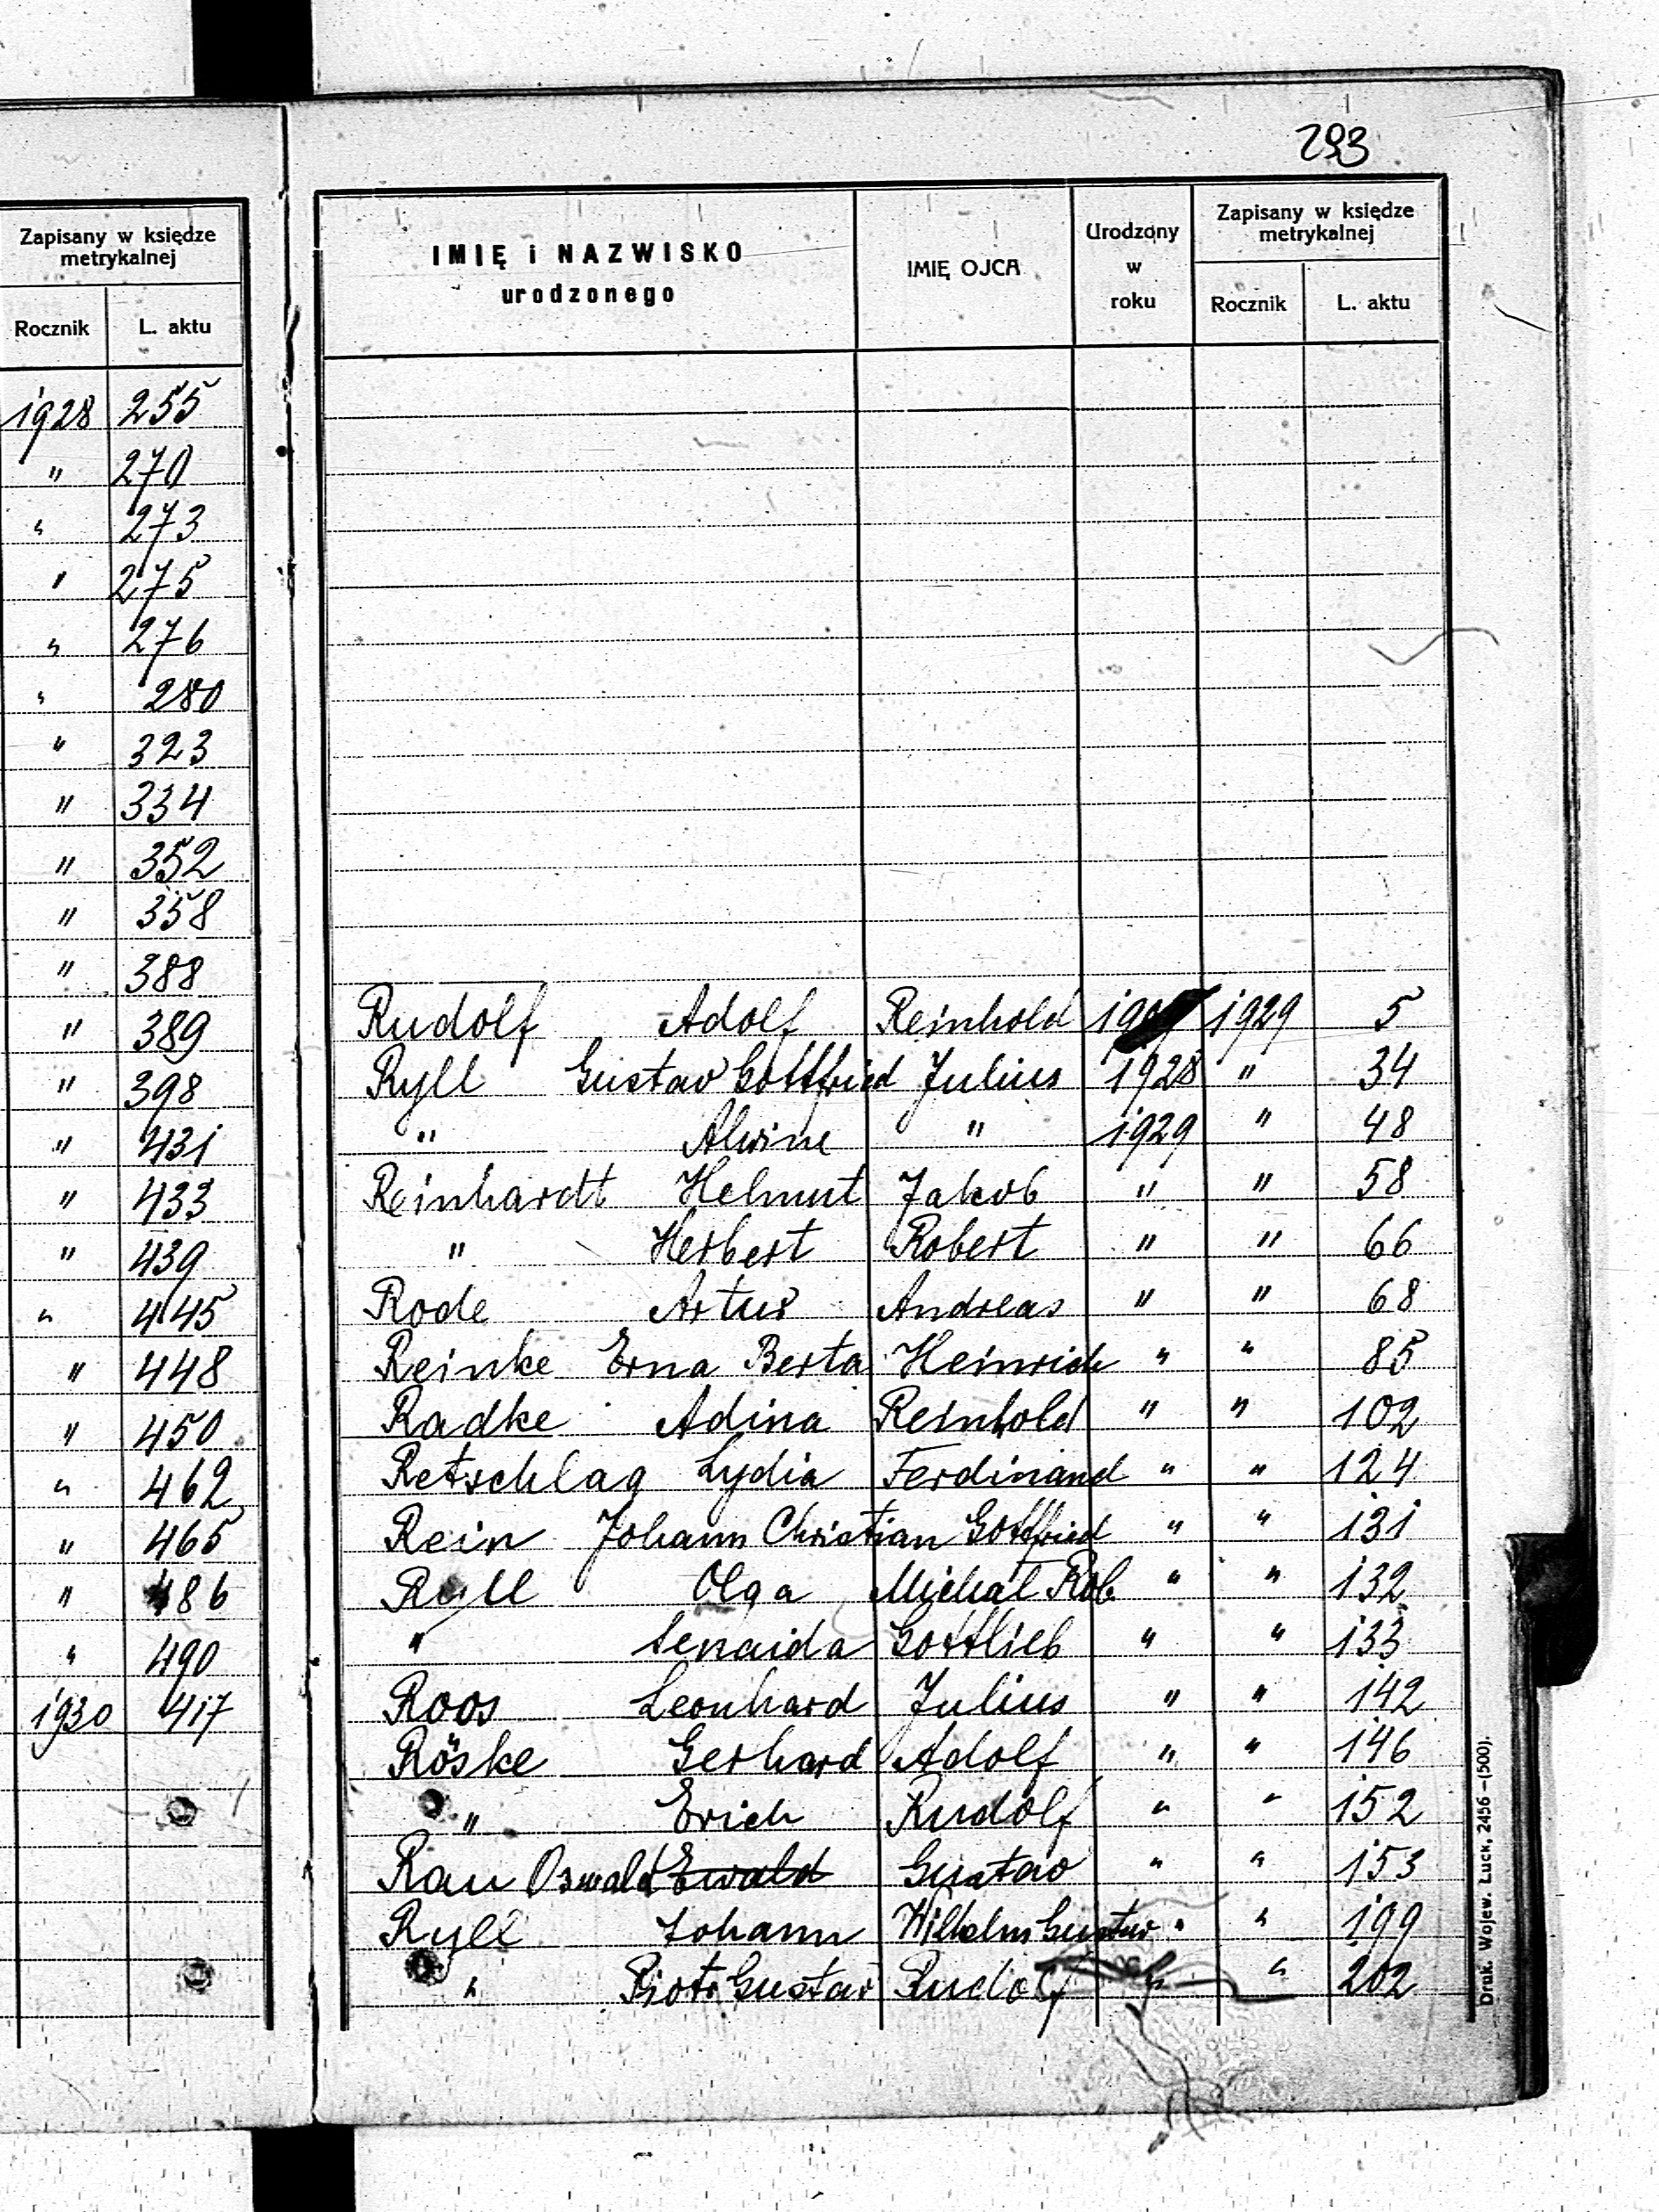 293
Zapisany w księdze
metrykalnej
Rocznik L. aktu
1928 255
" 270
" 273
" 275
" 276
" 280
" 323
" 334
" 352
" 358
" 388
" 389
" 398
" 431
" 433
" 439
" 445
" 448
" 450
" 462
" 465
" 486
" 490
1930 417
IMIĘ i NAZWISKO
urodzonego
IMIĘ OJCA
Urodzony
w
roku
Zapisany w księdze
metrykalnej
Rocznik L. aktu
Rudolf Adolf Reinhold 1929 5
Ryll Gustav Gottfried Julius 1928 " 34
" Alwine " 1929 " 48
Reinhardt Helmut Jakob " " 58
" Herbert Robert " " 66
Rode Artur Andreas " " 68
Reinke Erna Berta Heinrich " " 85
Radke Adina Reinhold " " 102
Retschlag Lydia Ferdinand " " 124
Rein Johann Christian Gottfried " " 131
Ryll Olga Michał Rob. " " 132
" Senaida Gottlieb " " 133
Roos Leonhard Julius " " 142
Röske Gerhard Adolf " " 146
" Erich Rudolf " " 152
Rau Oswald Ewald Gustav " " 153
Ryll Johann Wilhelm Gustav " " 199
" Piotr Gustav Rudolf " " 202
Druk. Wojew. Łuck, 2456 —(500).